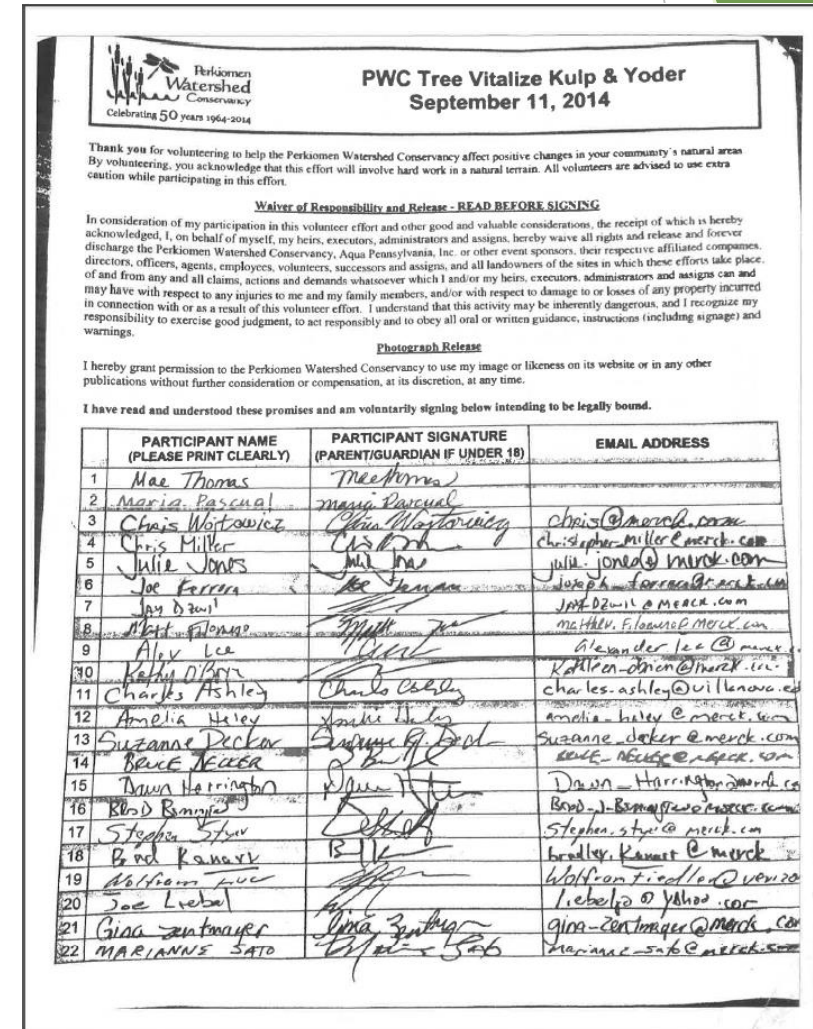 Perkiomen
Watershed
Conservancy
Celebrating 50 years 1964-2014
PWC Tree Vitalize Kulp & Yoder
September 11, 2014
Thank you for volunteering to help the Perkiomen Watershed Conservancy affect positive changes in your community's natural areas
By volunteering, you acknowledge that this effort will involve hard work in a natural terrain. All volunteers are advised to use extra
caution while participating in this effort.
Waiver of Responsibility and Release - READ BEFORE SIGNING
In consideration of my participation in this volunteer effort and other good and valuable considerations, the receipt of which is hereby
acknowledged, I, on behalf of myself, my heirs, executors, administrators and assigns, hereby waive all rights and release and forever
discharge the Perkiomen Watershed Conservancy, Aqua Pennsylvania, Inc. or other event sponsors, their respective affiliated companies,
directors, officers, agents, employees, volunteers, successors and assigns, and all landowners of the sites in which these efforts take place,
of and from any and all claims, actions and demands whatsoever which I and/or my heirs, executors, administrators and assigns can and
may have with respect to any injuries to me and my family members, and/or with respect to damage to or losses of any property incurred
in connection with or as a result of this volunteer effort. I understand that this activity may be inherently dangerous, and I recognize my
responsibility to exercise good judgment, to act responsibly and to obey all oral or written guidance, instructions (including signage) and
warnings.
Photograph Release
I hereby grant permission to the Perkiomen Watershed Conservancy to use my image or likeness on its website or in any other
publications without further consideration or compensation, at its discretion, at any time.
I have read and understood these promises and am voluntarily signing below intending to be legally bound.
PARTICIPANT NAME PARTICIPANT SIGNATURE EMAIL ADDRESS
(PLEASE PRINT CLEARLY) (PARENT/GUARDIAN IF UNDER 18)
1 Mae Thomas
2 Maria Pascual Maria Pascual
3 Chris Wojtowicz Chris Wojtowicz chris@merck.com
4 Chris Miller christopher_miller@merck.com
5 Julie Jones julie.jones@merck.com
6 Joe
7 Jay Dzwil JAY.DZwil@MERCK.com
8 Matt
9 Alex Lee alexander lee@merck.c
10 Kathy
11 Charles Ashley charles.ashley@villanova.ed
12 Amelia Haley amelia_haley@merck.com
13 Suzanne Decker suzanne_decker@merck.com
14 BRUCE
15 Dawn Harrington Dawn_Harrington@merck.co
16
17 Stephen Styer Stephen.styer@merck.com
18 Brad Kanarr bradley.Kanarr@merck
19 Wolfram
20 Joe Liebel
21 Gina Zentmayer Gina gina_zentmayer@merck.com
22 MARIANNE SATO marianne_sato@merck.com